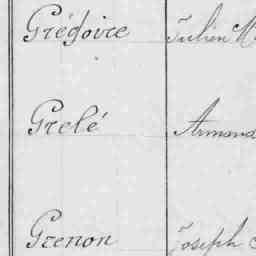 Grégoire Julien
Grelé Armand
Grenon Joseph